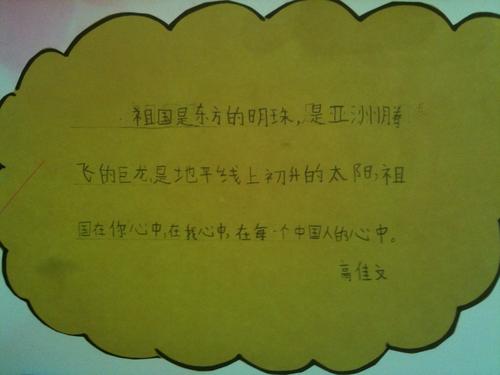 祖国是东方的明珠,是亚洲腾
飞的巨龙,是地平线上初升的太阳,祖
国在你心中,在我心中,在每一个中国人的心中。
高佳文